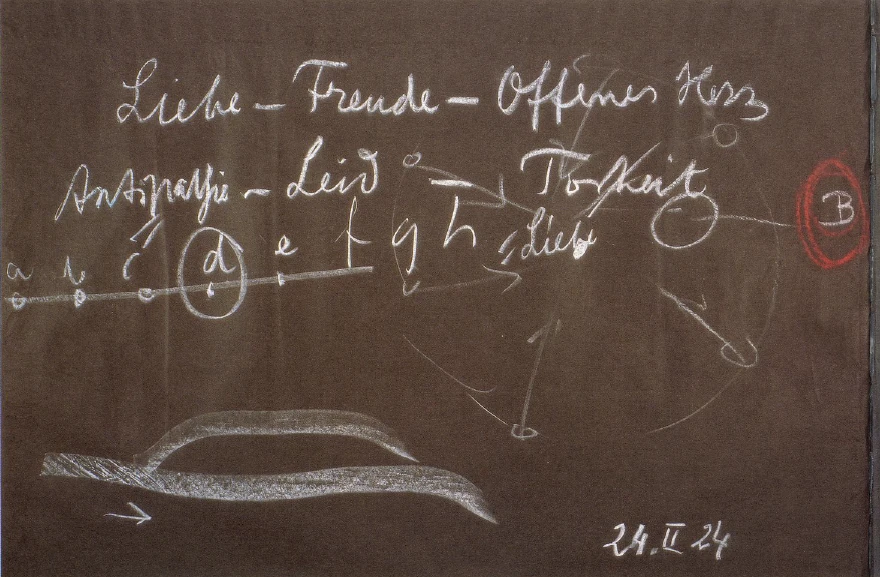 Liebe – Freude – Offenes Herz
Antipathie – Leid – Torheit
"Liebe
B
a b c d e f g h
24.II 24